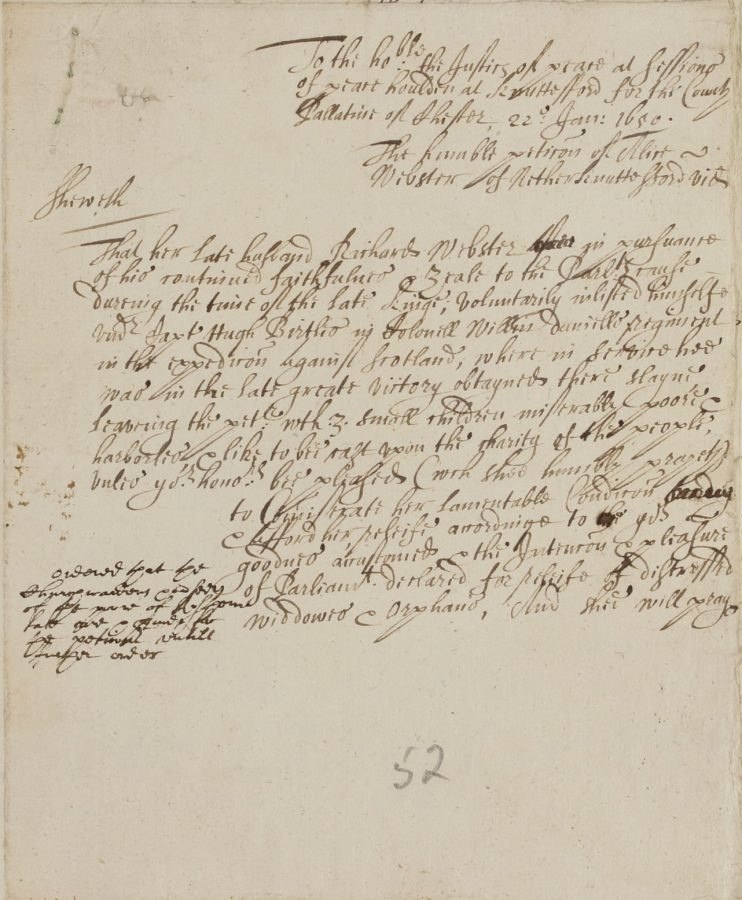 To the ho:ble the Justices of peace at Sessions
of peace houlden at Knuttesford for the County
Pallatine of Chester, 22o. Jan: 1650.
The humble peticon of Alice
Webster of Nether Knuttesford vid
Sheweth
That her late husband Richard Webster in pursuance
of his contined faithfulnes & Zeale to the Parlts cause
dureing the time of the late Kinge, voluntarily inlisted himselfe
vndr Capt Hugh Bertles in Colonell Willm Daniells Regiment
in the expedicon against Scotland, where in service hee
was in the late greate victory obtayned there slayne
Leaveing the petr. wth 3. small children miserably poore &
harborles & like to bee cast upon the charity of the people,
vnles yor honors bee pleased (wch shee humbly prayeth)
to Comiserate her lamentable Condicon
& afford her releife accordinge to yor
goodnes accustomed & the Intencon & pleasure
of Parliamt. declared for releife of distressed
widdowes & Orphans, And shee will pray
ordered that the
Churchwardens & ouerseers
of the poore of the
take care & prouide for
the peticonr vntill
further order
52